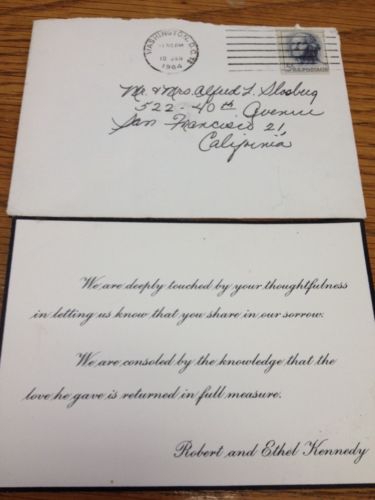 WASHINGTON, D.C.
PM
10 JAN
1964
5¢ U.S. POSTAGE
Mr. & Mrs. Alfred L. Slosberg
522 - 40th Avenue
San Francisco 21,
California
We are deeply touched by your thoughtfulness
in letting us know that you share in our sorrow.
We are consoled by the knowledge that the
love he gave is returned in full measure.
Robert and Ethel Kennedy